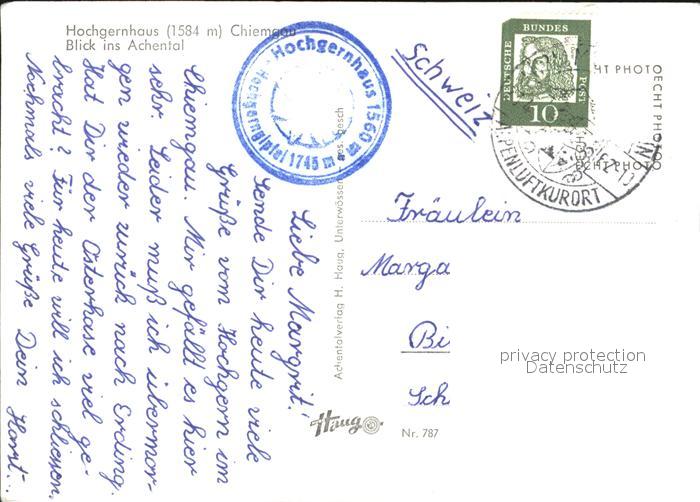 Hochgernhaus (1584 m) Chiemgau
Blick ins Achental
Hochgernhaus 1560 m
Hochgerngipfel 1745 m
Liebe Margrit!
Sende Dir heute viele
Grüße vom Hochgern im
Chiemgau. Mir gefällt es hier
sehr. Leider muß ich übermor-
gen wieder zurück nach Erding.
Hat Dir der Osterhase viel ge-
bracht? Für heute will ich schliessen.
Nochmals viele Grüße Dein Horst.
Achentalverlag H. Haug, Unterwössen
ges. gesch
Haug
Nr. 787
Schweiz
DEUTSCHE BUNDES POST
10
ALPENLUFTKURORT
ECHT PHOTO
ECHT PHOTO
ECHT PHOTO
Fräulein
Marga
Bi
Sch
privacy protection
Datenschutz